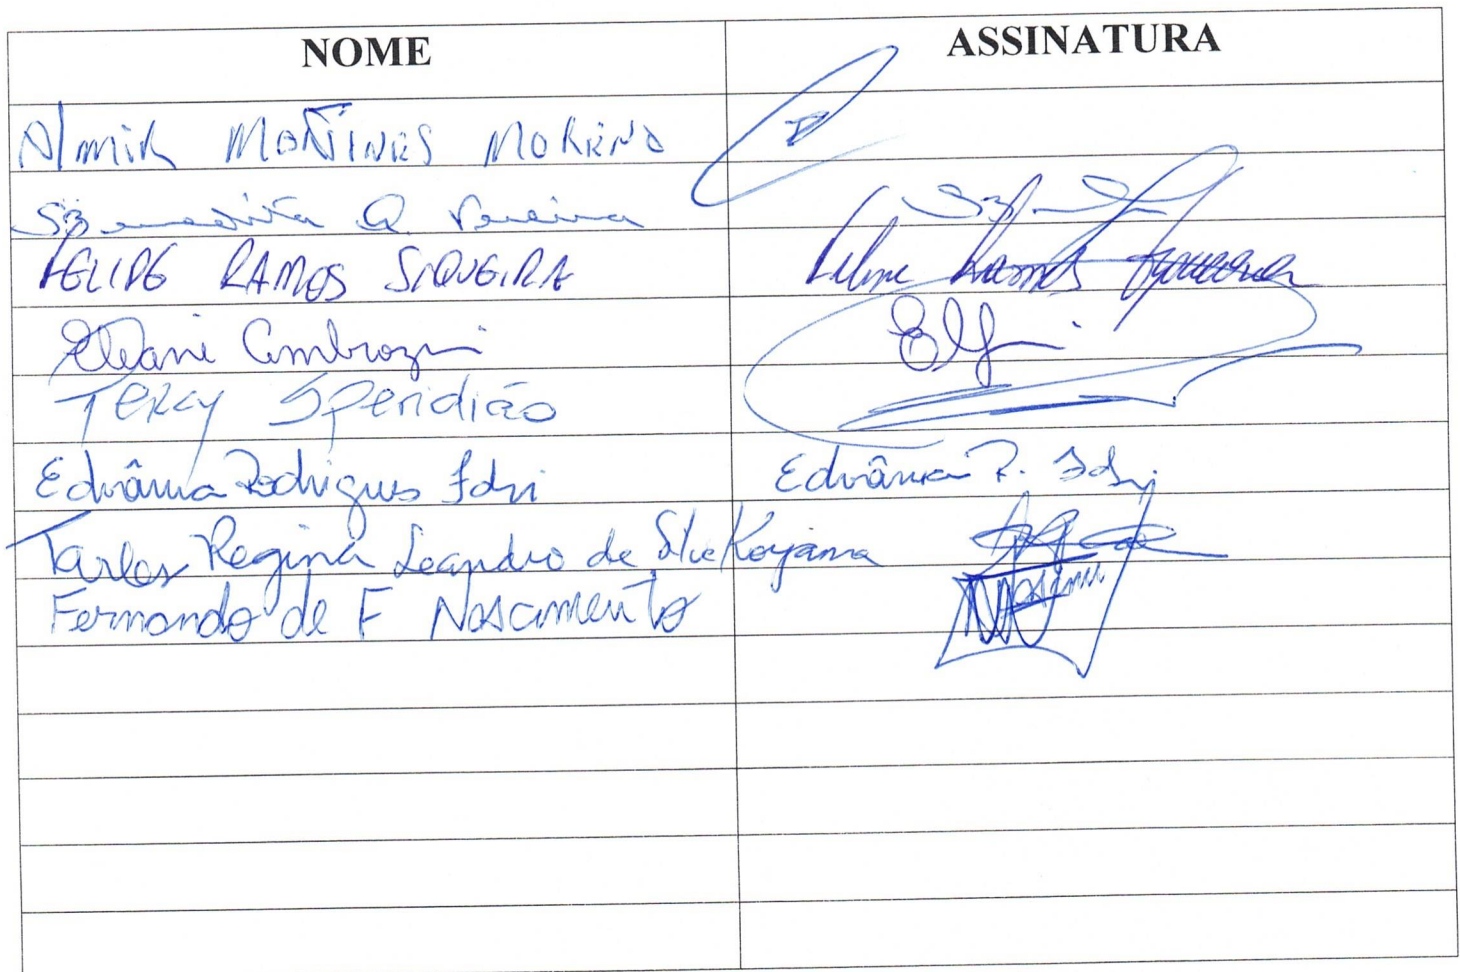 NOME ASSINATURA
Almir MARTINES MORENO
Benedita A. Pereira
FELIPE RAMOS SIQUEIRA Felipe Ramos Siqueira
Eleani Ambrozini
Tercy Speridião
Edvânia Rodrigues Edvânia R.
Regina Leandro de Koyama
Fernando de F Nascimento